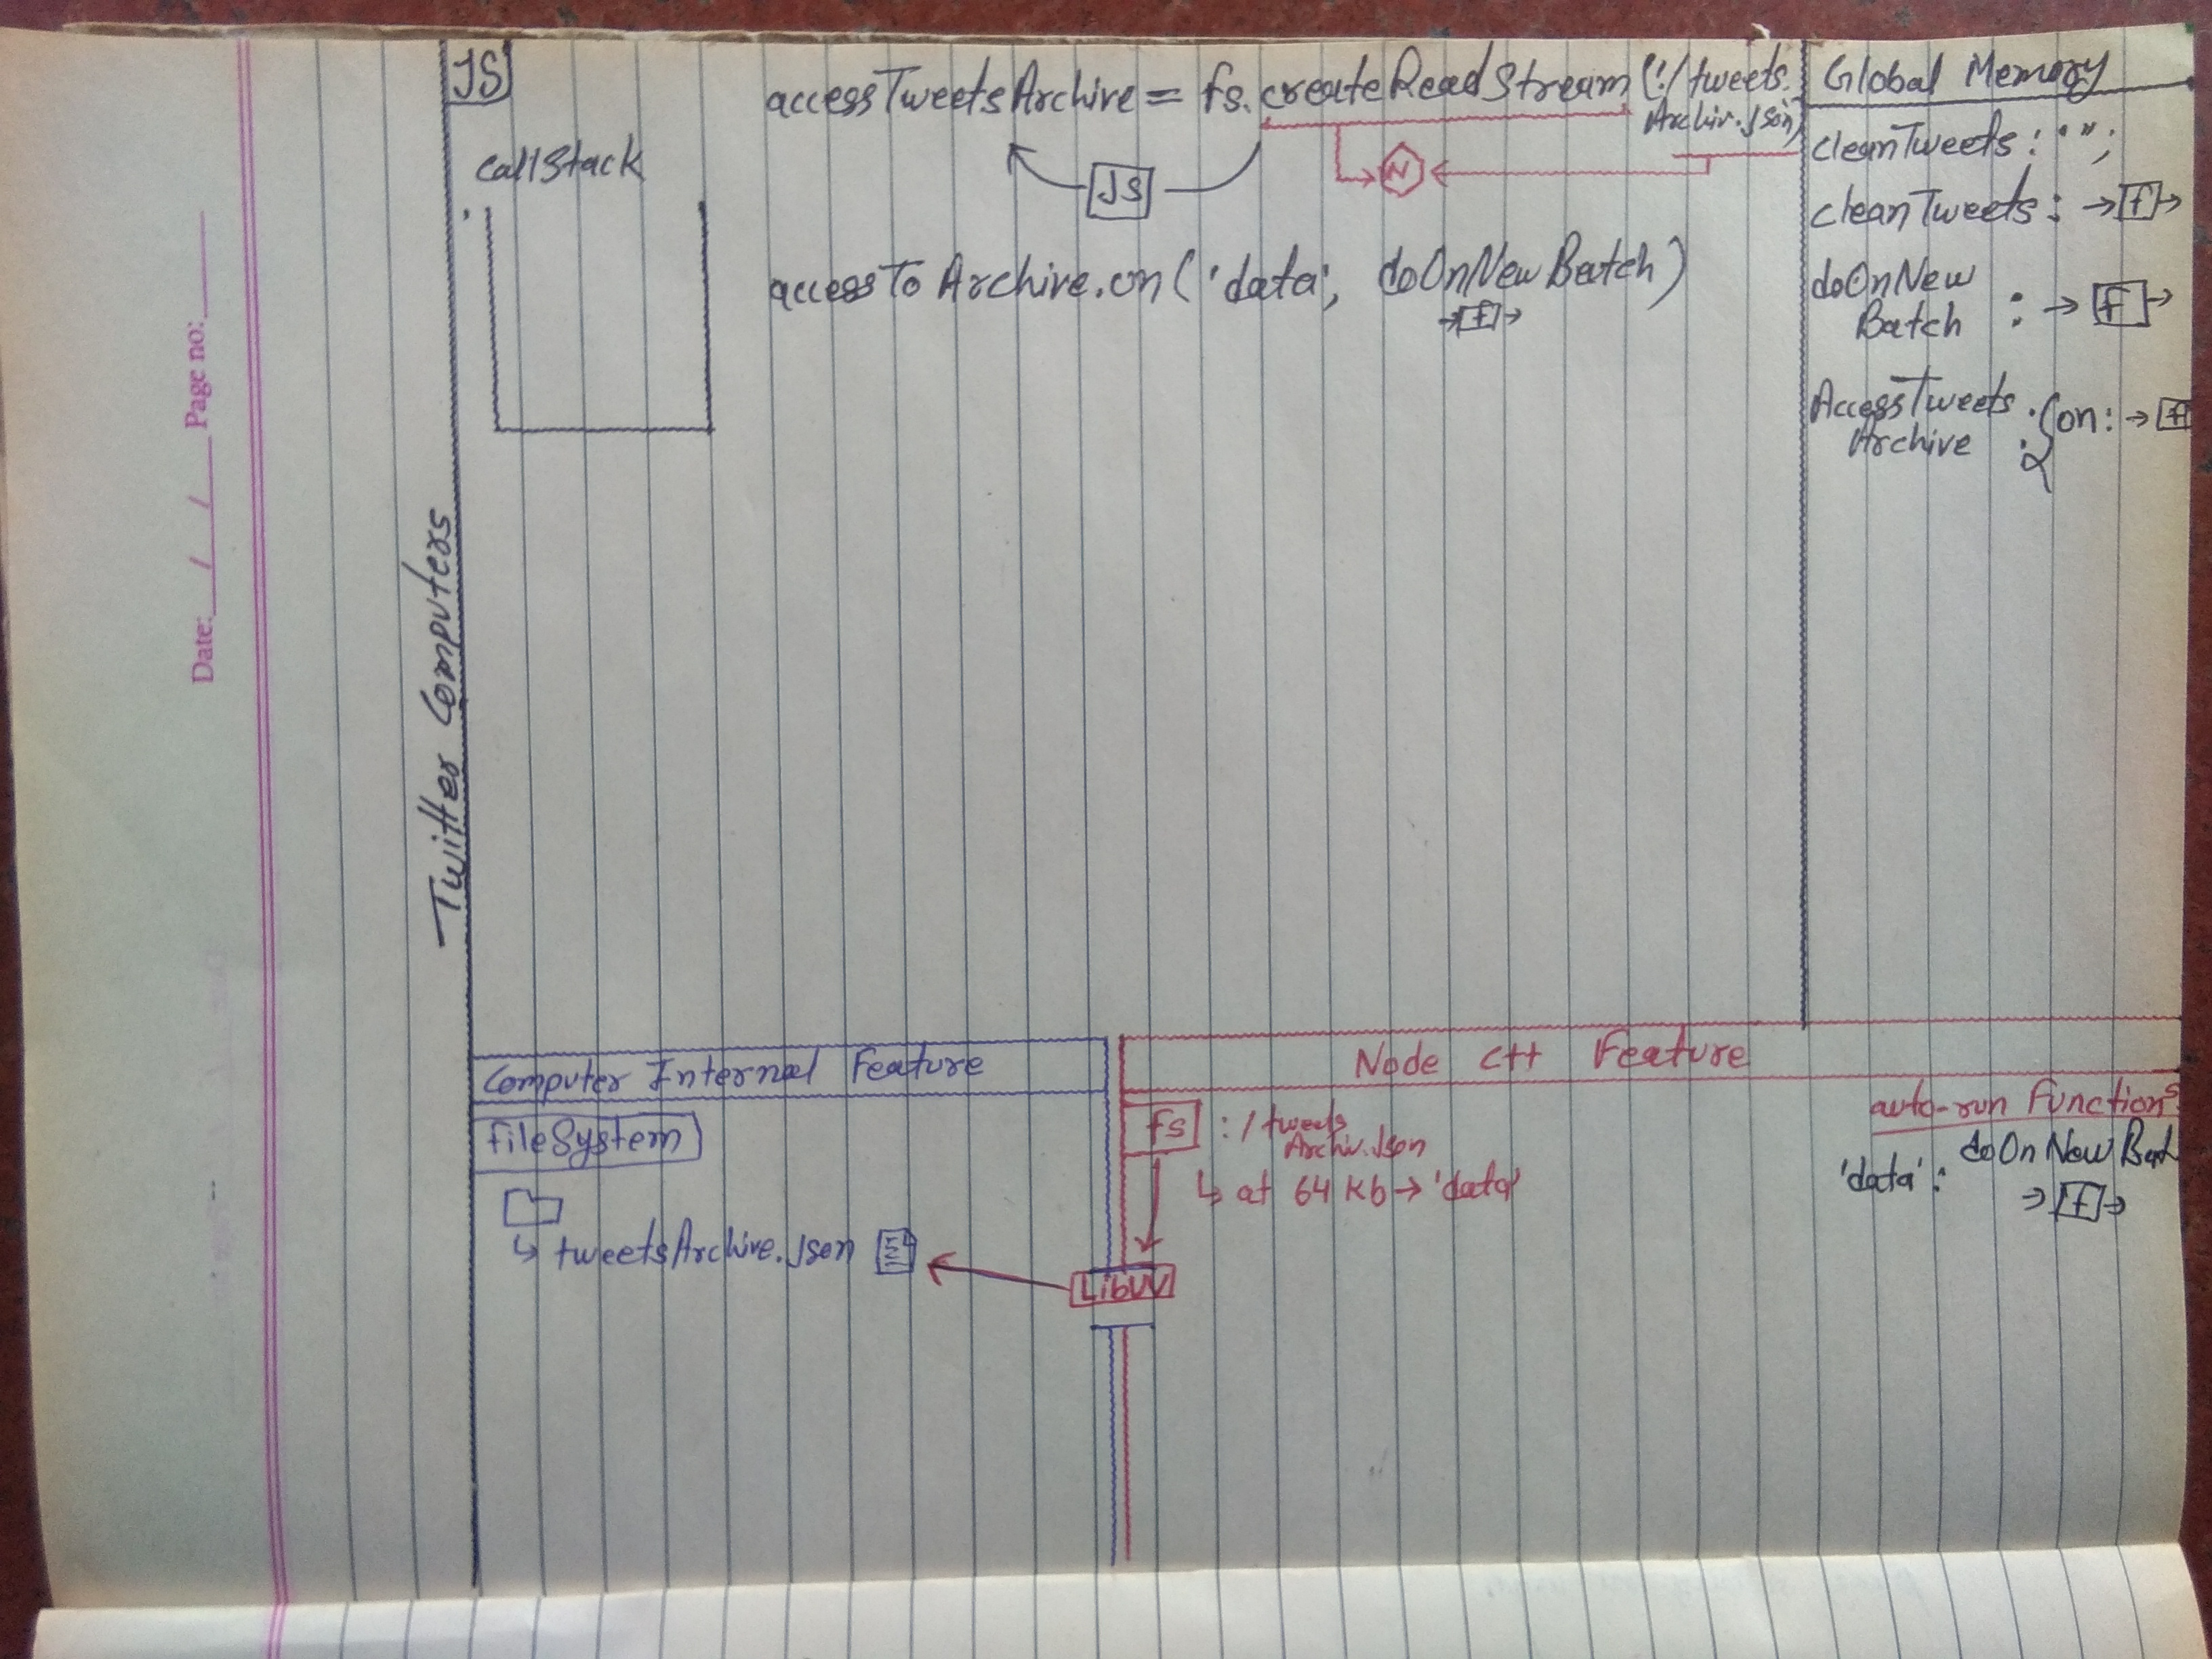 JS
callStack
accessTweetsArchive = fs.createReadStream('./tweets.
Archiv.json)
JS
N
accessToArchive.on('data', doOnNewBatch)
→[f]→
Global Memory
cleanTweets: "";
cleanTweets: →[f]→
doOnNew
Batch : →[f]→
AccessTweets
Archive : {on: →[f]
Date: / / Page no:
Twitter Computers
Computer Internal Feature
fileSystem
↳ tweetsArchive.json
Node C++ Feature
fs : /tweets
Archiv.json
↳ at 64 kb → 'data'
LibUV
auto-run functions
'data': doOnNewBat
→[f]→